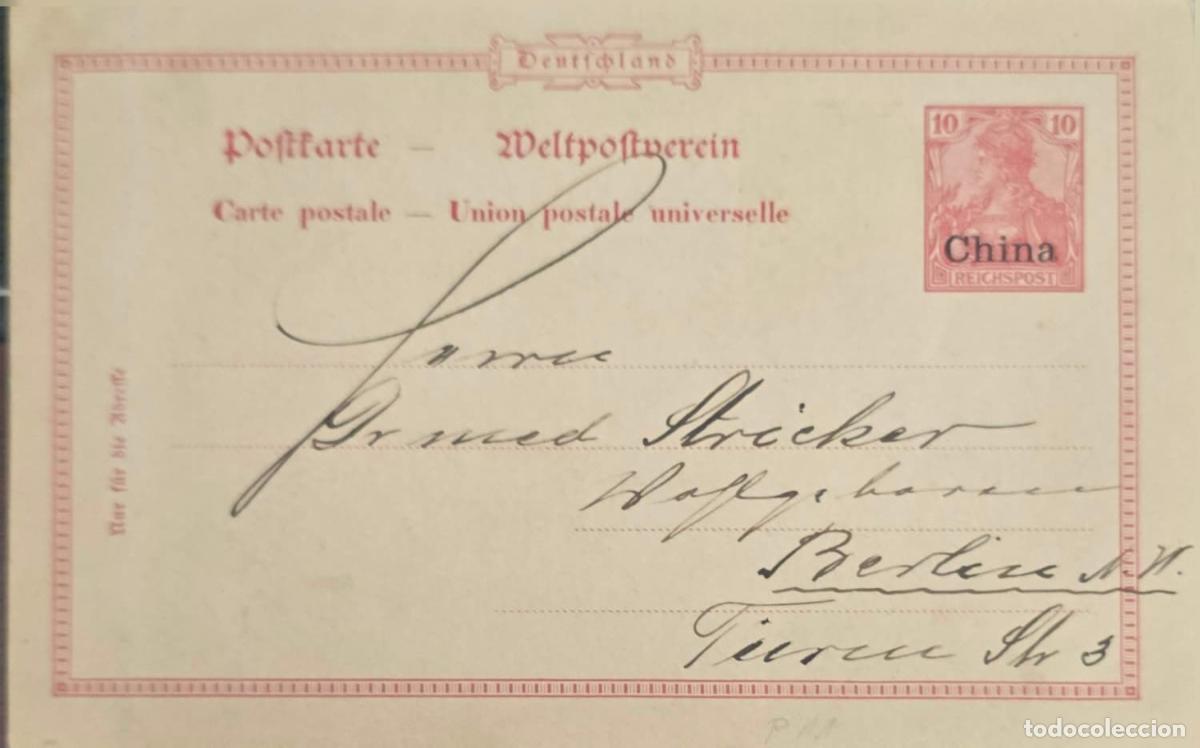 Deutschland
Postkarte — Weltpostverein
Carte postale — Union postale universelle
10 10
China
REICHSPOST
Nur für die Adresse
Herrn
Dr med Stricker
Wohlgeboren
Berlin N.W.
Turm Str 3
todocoleccion